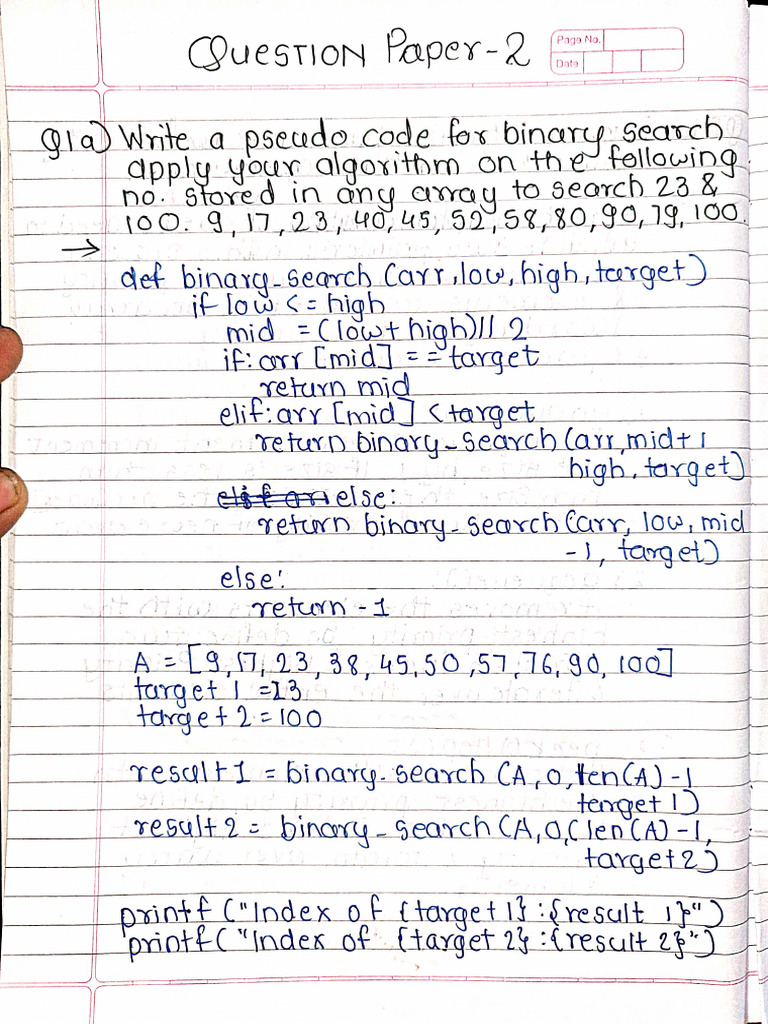 QUESTION Paper-2
Page No.
Date
Q1a) Write a pseudo code for binary search
apply your algorithm on the following
no. stored in any array to search 23 &
100. 9, 17, 23, 40, 45, 52, 58, 80, 90, 79, 100.
→
def binary-search (arr, low, high, target)
if low <= high
mid = (low + high)// 2
if: arr [mid] == target
return mid
elif: arr [mid] < target
return binary-search (arr, mid+1
high, target)
else:
return binary-search (arr, low, mid
-1, target)
else:
return -1
A = [9, 17, 23, 38, 45, 50, 57, 76, 90, 100]
target 1 = 23
target 2 = 100
result 1 = binary-search (A, 0, len(A) -1
target 1)
result 2 = binary-search (A, 0, (len (A) -1,
target 2)
printf ("Index of {target 1} : {result 1}")
printf ("Index of {target 2} : {result 2}")